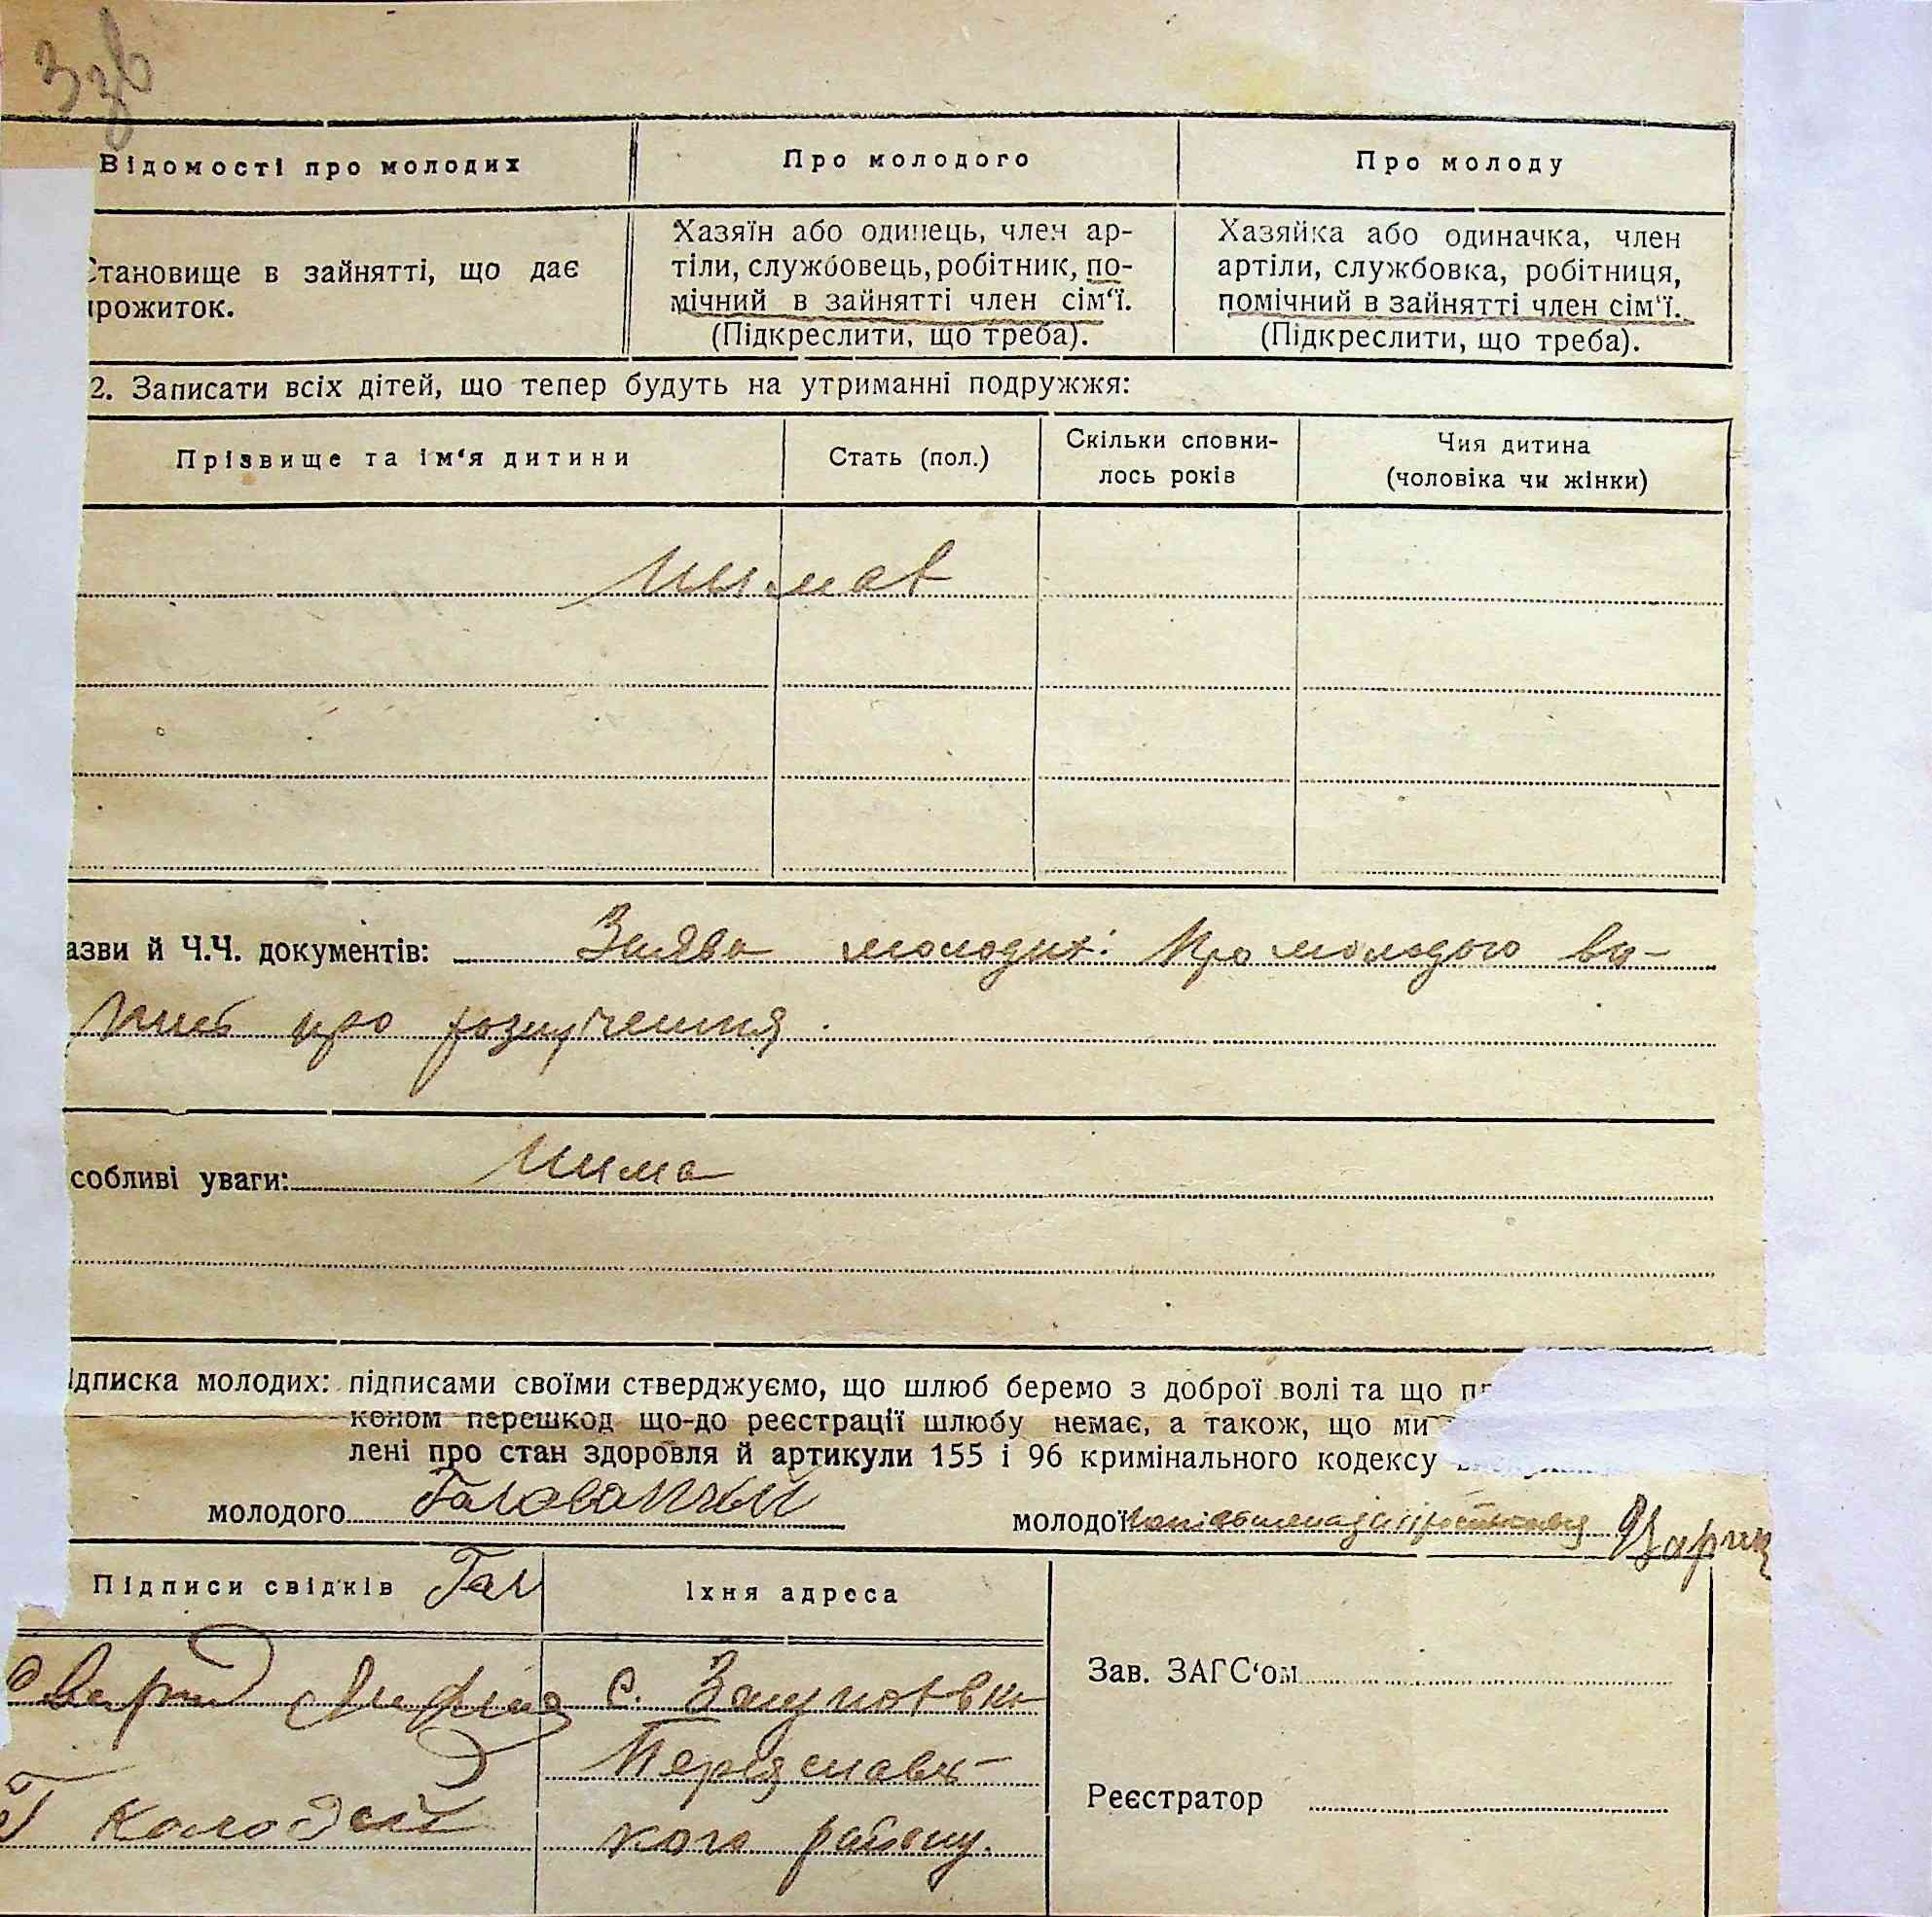 Відомості про молодих
Про молодого
Про молоду
Становище в зайнятті, що дає
прожиток.
Хазяїн або одинець, член ар-
тіли, службовець, робітник, по-
мічний в зайнятті член сім‘ї.
(Підкреслити, що треба).
Хазяйка або одиначка, член
артіли, службовка, робітниця,
помічний в зайнятті член сім‘ї.
(Підкреслити, що треба).
2. Записати всіх дітей, що тепер будуть на утриманні подружжя:
Прізвище та ім‘я дитини
Стать (пол.)
Скільки сповни-
лось років
Чия дитина
(чоловіка чи жінки)
азви й Ч.Ч. документів: Заява молодих: Про молодого ви-
пись про розлучення.
собливі уваги: Нима
ідписка молодих: підписами своїми стверджуємо, що шлюб беремо з доброї волі та що
коном перешкод що-до реєстрації шлюбу немає, а також, що ми
лені про стан здоровля й артикули 155 і 96 кримінального кодексу
молодого
молодої
Підписи свідків
Їхня адреса
с.
Переяславс-
кого району.
Колодей
Зав. ЗАГС‘ом
Реєстратор